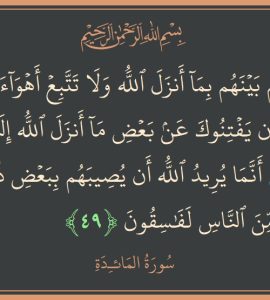 بِسْمِ ٱللَّهِ ٱلرَّحْمَٰنِ ٱلرَّحِيمِ
بَيْنَهُم بِمَآ أَنزَلَ ٱللَّهُ وَلَا تَتَّبِعْ أَهْوَآءَ
يَفْتِنُوكَ عَنۢ بَعْضِ مَآ أَنزَلَ ٱللَّهُ
أَنَّمَا يُرِيدُ ٱللَّهُ أَن يُصِيبَهُم بِبَعْضِ
ٱلنَّاسِ لَفَٰسِقُونَ ﴿٤٩﴾
سُورَةُ المَائـِدَةِ